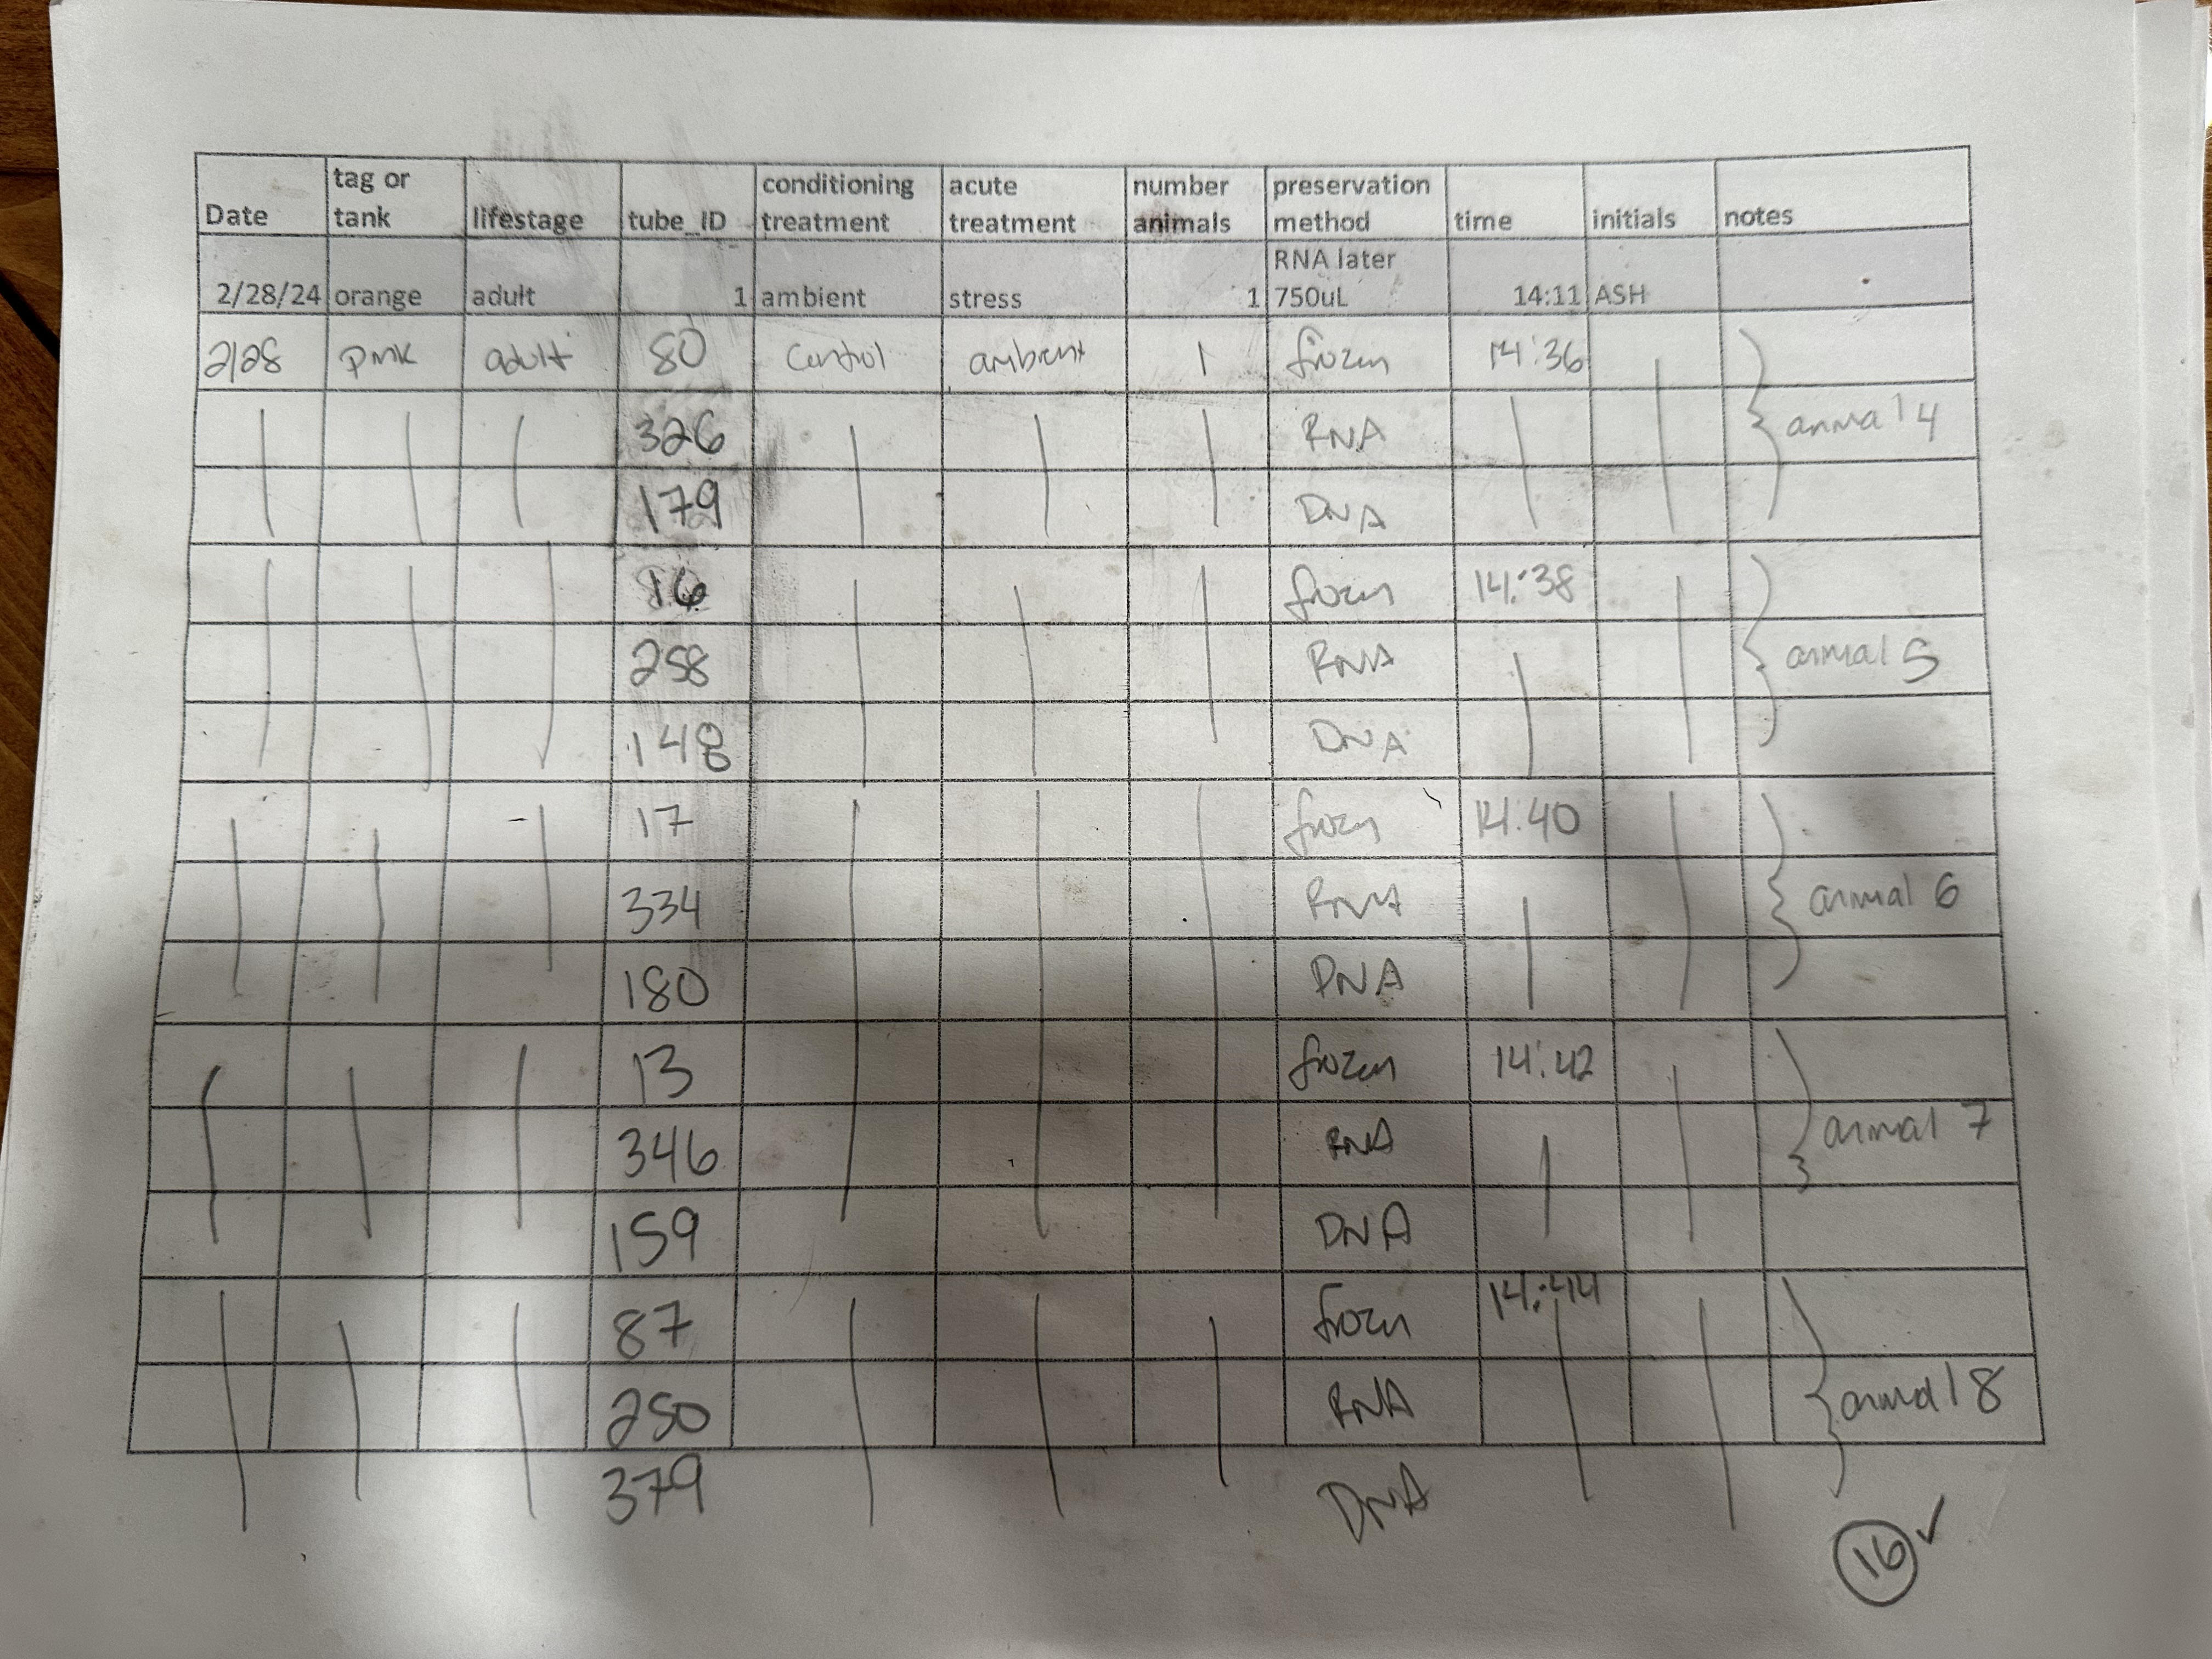 Date tag or tank lifestage tube_ID conditioning treatment acute treatment number animals preservation method time initials notes
2/28/24 orange adult 1 ambient stress 1 RNA later 750uL 14:11 ASH
2/28 pink adult 80 control ambient 1 frozen 14:36
326 RNA animal 4
179 DNA
16 frozen 14:38
258 RNA animal 5
148 DNA
17 frozen 14:40
334 RNA animal 6
180 DNA
13 frozen 14:42
346 RNA animal 7
159 DNA
87 frozen 14:44
250 RNA animal 8
379 DNA
16